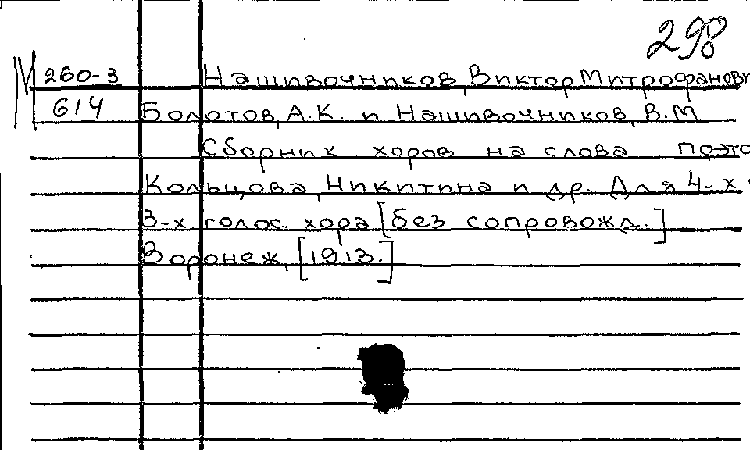 298
М 260-3 Нашивочников, Виктор Митрофанови
614 Болотов, А.К. и Нашивочников, В.М
Сборник хоров на слова поэто
Кольцова, Никитина и др. Для 4-х
3-х голос. хора [без сопровожд.]
Воронеж, [1913.]